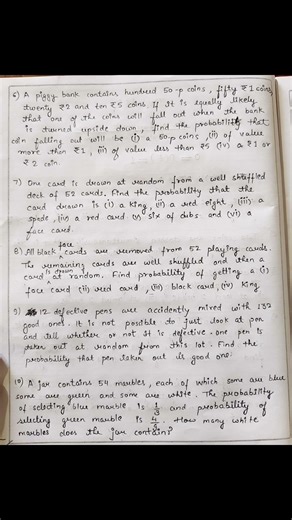 6) A piggy bank contains hundred 50-p coins, fifty ₹1 coins
twenty ₹2 and ten ₹5 coins If It is equally likely
that one of the coins will fall out when the bank
is turned upside down, find the probability that
coin falling out will be (i) a 50-p coin, (ii) of value
more than ₹1, (iii) of value less than ₹5 (iv) a ₹1 or
₹2 coin.
7) One card is drawn at random from a well shuffled
deck of 52 cards. Find the probability that the
card drawn is (i) a king, (ii) a red eight, (iii) a
spade, (iv) a red card (v) six of clubs and (vi) a
face card.
8) All black face cards are removed from 52 playing cards.
The remaining cards are well shuffled and then a
card is drawn at random. Find probability of getting a (i)
face card (ii) red card, (iii) black card, (iv) king.
9) 12 defective pens are accidently mixed with 132
good ones. It is not possible to just look at pen
and tell whether or not It is defective. One pen is
taken out at random from this lot. Find the
probability that pen taken out is good one.
10) A jar contains 54 marbles, each of which some are blue
some are green and some are white. The probability
of selecting blue marble is 1/3 and probability of
selecting green marble is 4/9. How many white
marbles does the jar contain?